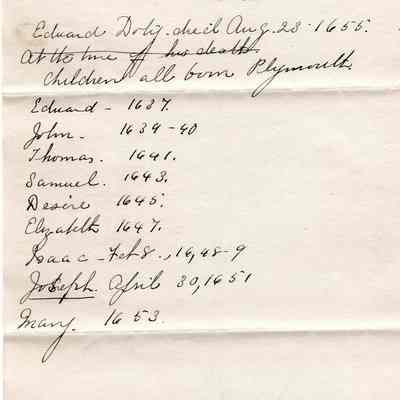 Edward Doty. died Aug. 23 - 1655.
At the time of his death
children all born Plymouth
Edward - 1637.
John. 1639-40
Thomas. 1641.
Samuel. 1643.
Desire 1645.
Elizabeth 1647.
Isaac - Feb 8., 16,48-9
Joseph. April 30, 1651
Mary. 1653.